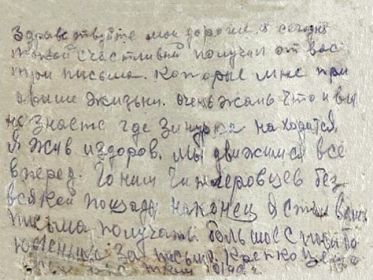 Здравствуйте мои дорогие, я сегодня
такой счастливый получил от вас
три письма. Которые мне при
жизни. очень жаль что и вы
не знаете где находится
Я жив и здоров. Мы движимся всё
вперед. Гоним Гитлеровцев без
всякой пощады наконец я стал ваши
письма получать большое спасибо
за письма. Крепко